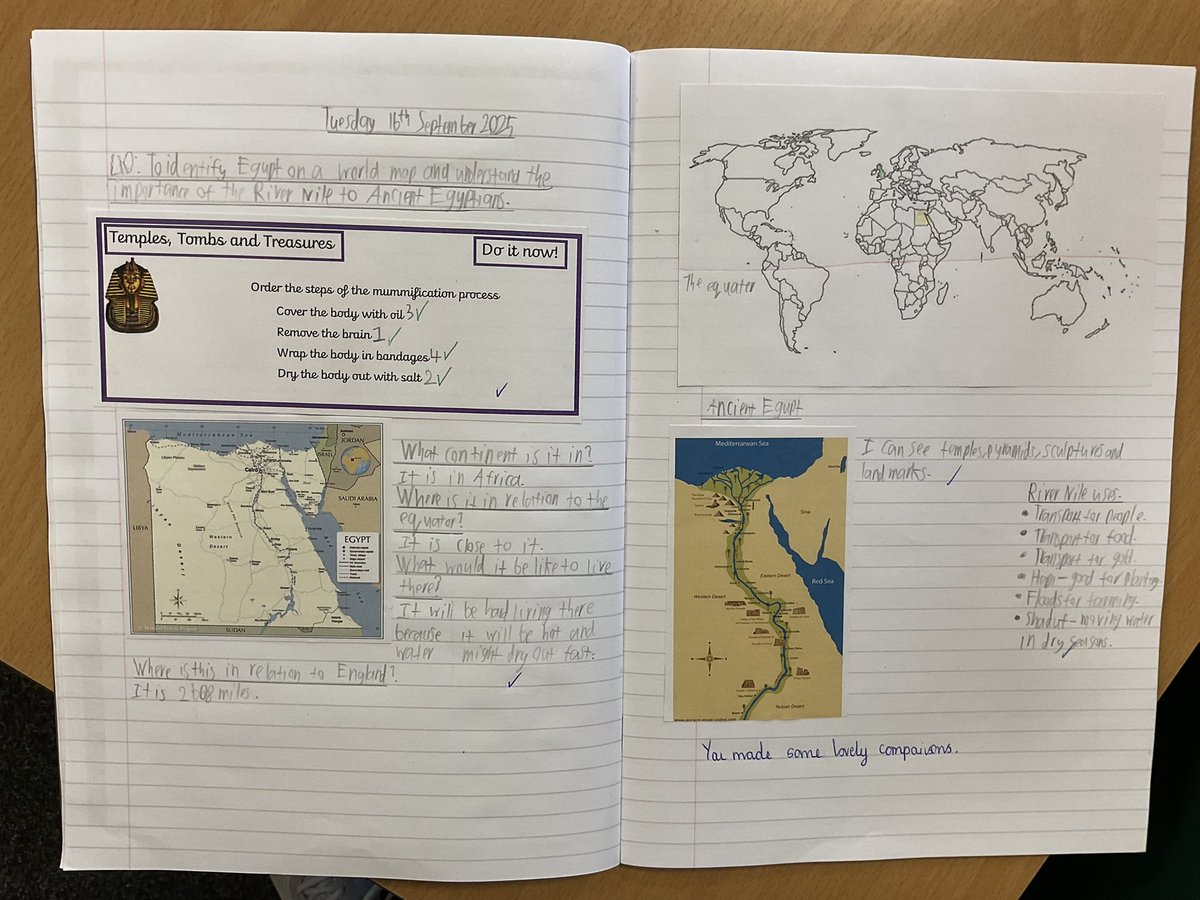 Tuesday 16th September 2025
LO: To identify Egypt on a world map and understand the
importance of the River Nile to Ancient Egyptians.
Temples, Tombs and Treasures
Do it now!
Order the steps of the mummification process
Cover the body with oil 3✓
Remove the brain 1✓
Wrap the body in bandages 4✓
Dry the body out with salt 2✓
Mediterranean Sea
JORDAN
ISRAEL
Cairo
SAUDI ARABIA
LIBYA
Western
Desert
EGYPT
SUDAN
What continent is it in?
It is in Africa.
Where is it in relation to the
equator?
It is close to it.
What would it be like to live
there?
It will be hard living there
because it will be hot and
water might dry out fast.
Where is this in relation to England?
It is 2608 miles.
The equater
Ancient Egypt
Mediterranean Sea
Sinai
Eastern Desert
Red Sea
Western Desert
Nubian Desert
I can see temples, pyramids, sculptures and
landmarks.
River Nile uses-
• Transport for people.
• Transport for food.
• Transport for gold.
• Hapi - good for planting
• Floods for farming.
• Shaduf - moving water
in dry seasons.
You made some lovely comparisons.